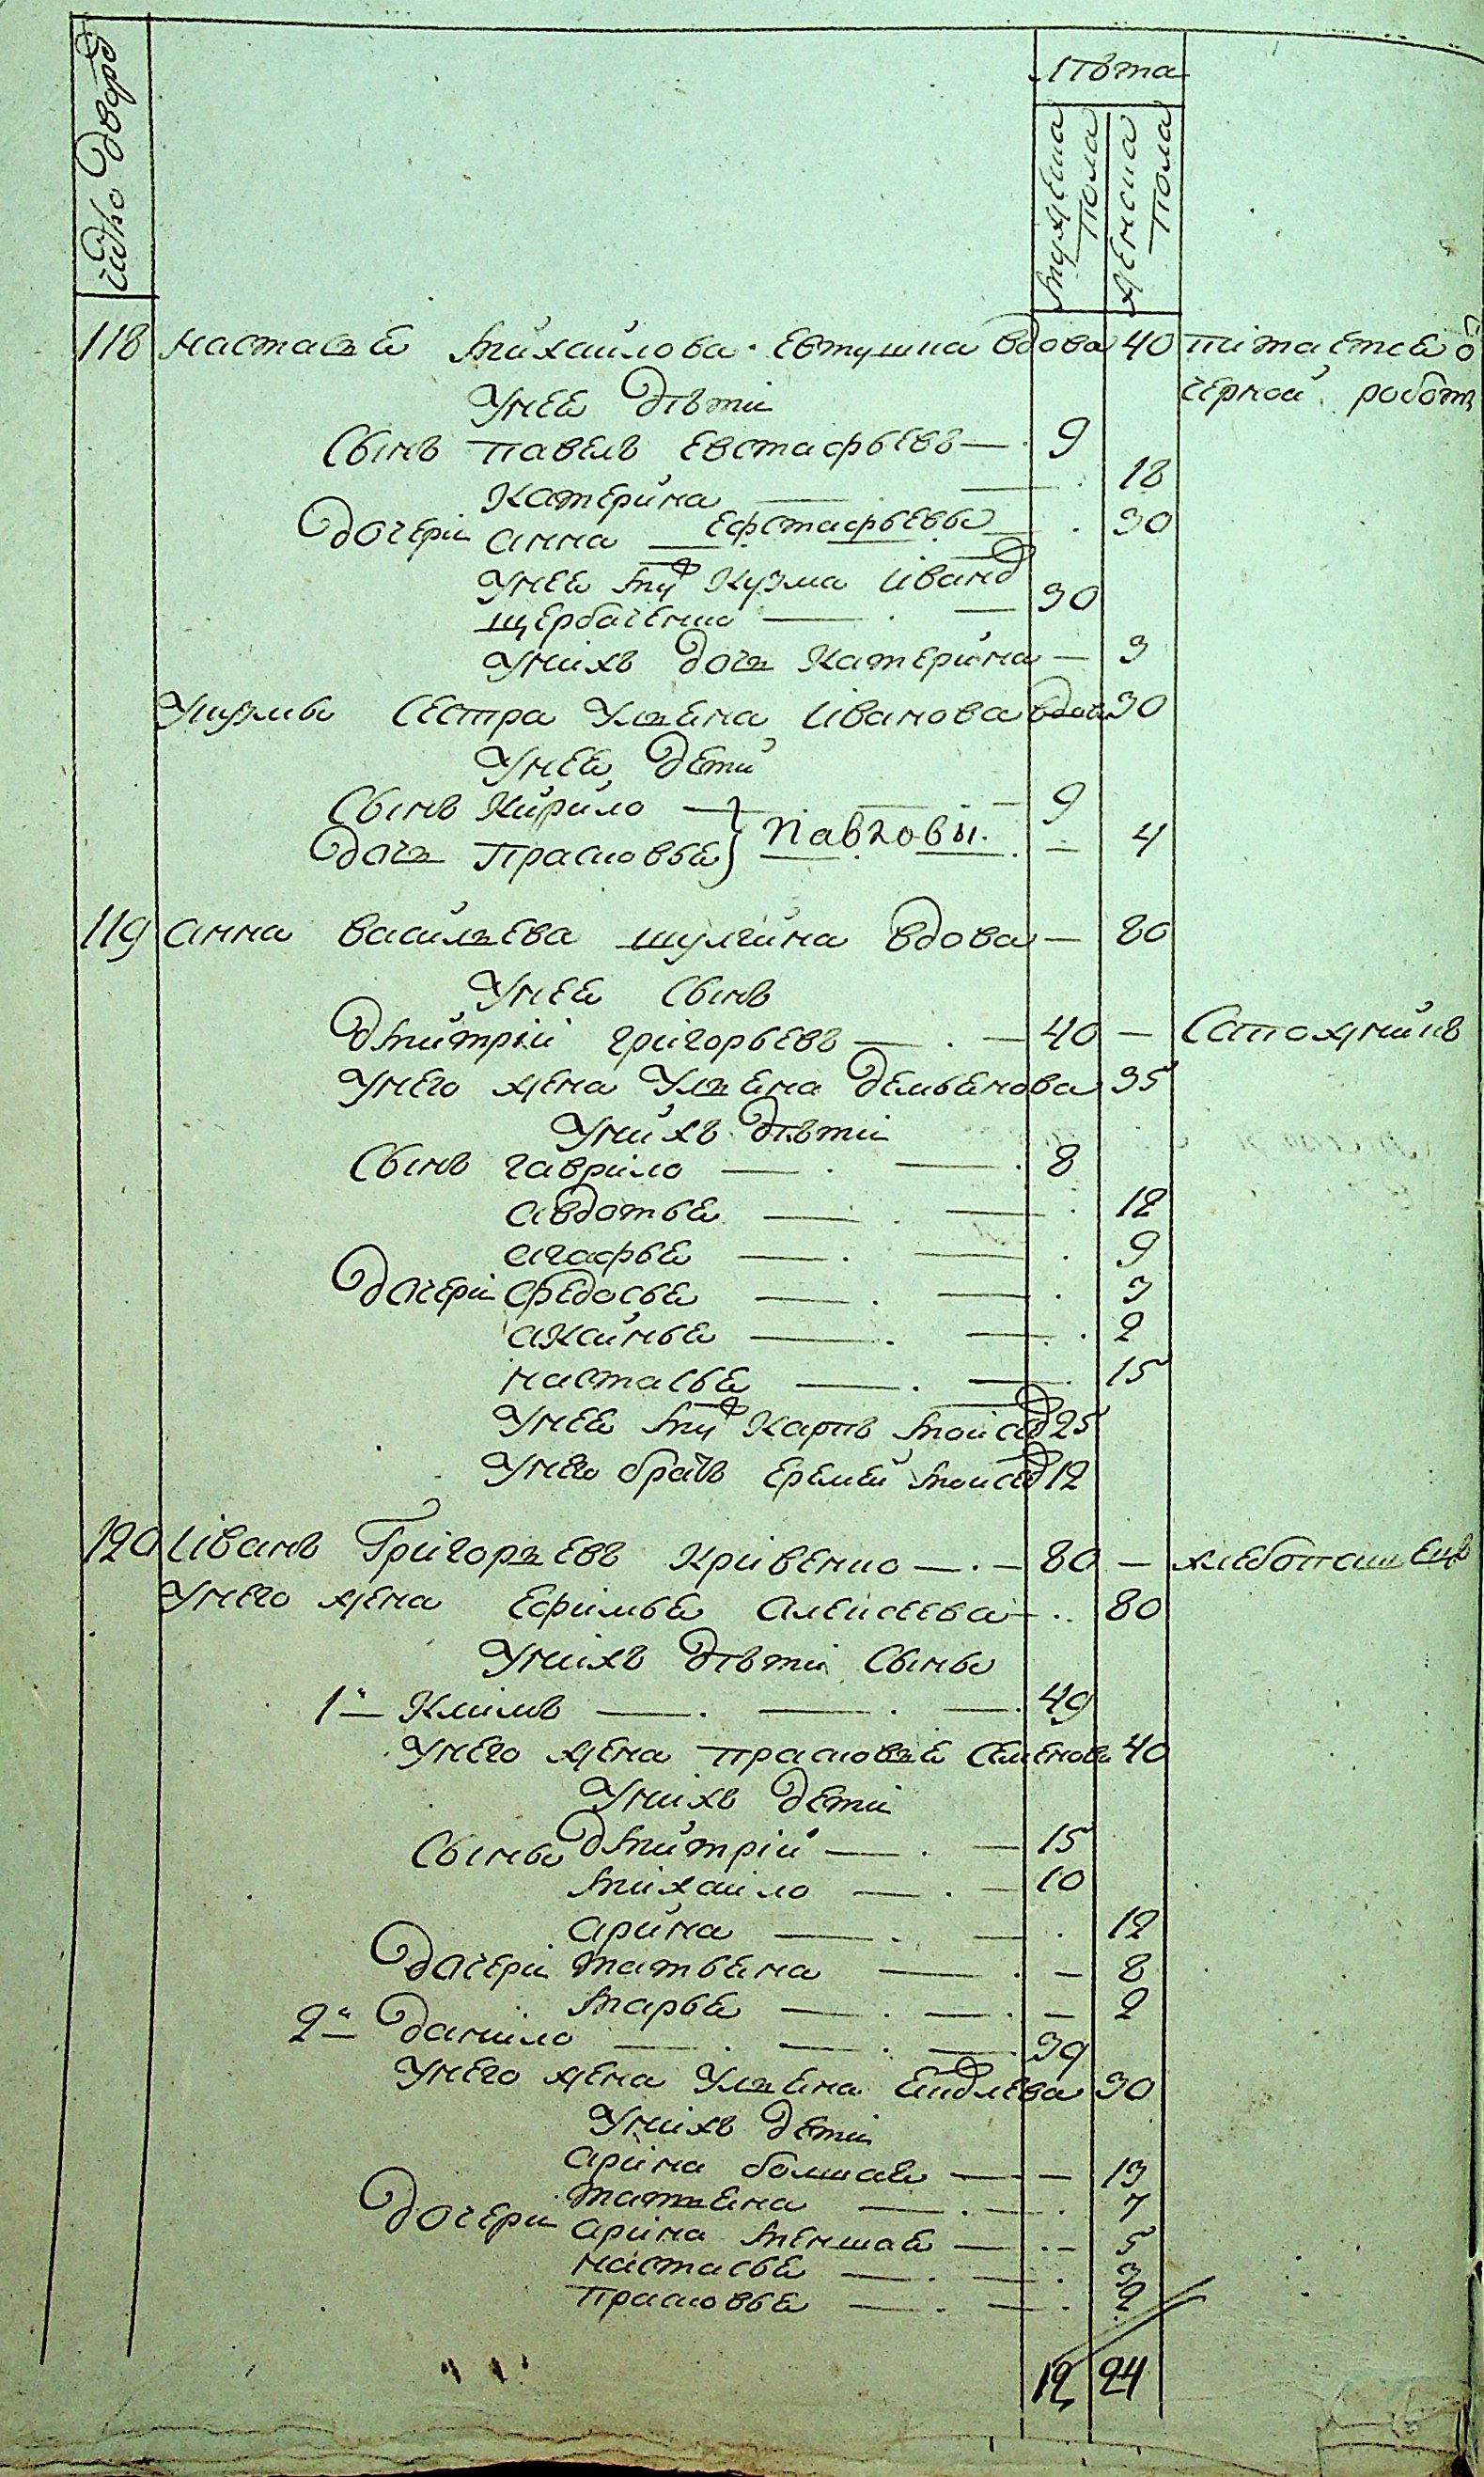 число дворов
лѣта
мужеска пола
женска пола
118 настасъя михайлова евтушка вдова 40 пітается ѿ
черной работы
Унея дѣти
Сынъ павелъ евстафьевъ — 9
Катерина — 18
дочери анна — ефстафьевы — 30
Унея му Кузма іванов
щербаченко — 30
Унихъ дочь Катерина — 3
Укузмы сестра Ульяна іванова вдова 30
Унея дети
Сынъ Кирило — 9
дочь прасковья } павловы. — 4
119 анна васильева шулгина вдова — 80
Унея сынъ
дмитрій григорьевъ — 40 — Сапожникъ
Унего жена Ульяна демьянова 35
Унихъ дѣти
Сынъ гаврило — 8
авдотья — 12
агафья — 9
дочери федосья — 3
акси́нья — 2
настасья — 15
Унея му Карпъ моисе 25
Унего братъ еремей моисе 12
120 іванъ Григоръевъ Кривенко — 80 — хлебопашецъ
Унего жена ефимья алексеева — 80
Унихъ дѣти сыны
1й Климъ — 49
Унего жена прасковья семенова 40
Унихъ дети
Сыны дмитрій — 15
михайло — 10
арина — 12
дочери татьяна — 8
марья — 2
2й данило — 39
Унего жена Ульяна 30
Унихъ дети
арина болшая — 13
татьяна — 7
дочери арина меншая — 5
настасья — 3
прасковья — 2
12 24